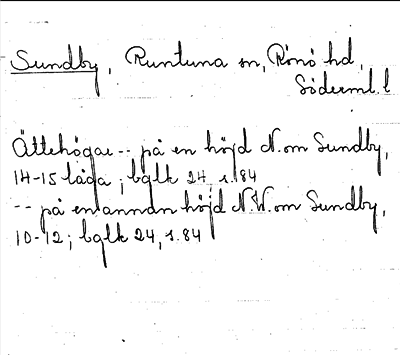 Sundby, Runtuna sn, Rönö hd,
Söderml. l
Ättehögar -- på en höjd N. om Sundby,
14-15 låga; bglk 24, s. 84
-- på en annan höjd N.V. om Sundby,
10-12; bglk 24, s. 84